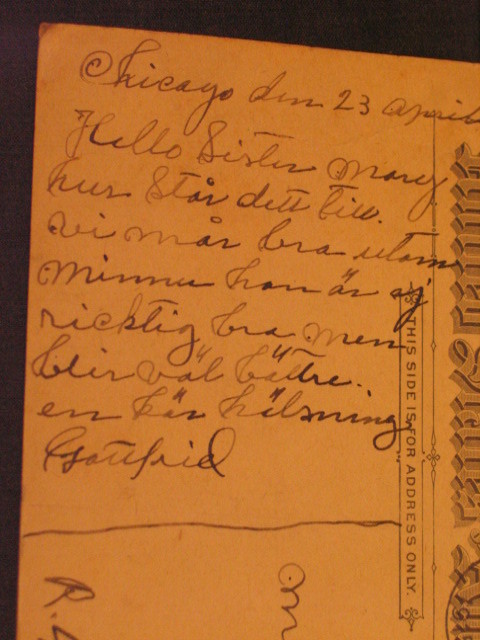 Chicago den 23 april
Hello Sister Mary
hur står dett till.
vi mår bra utom
Minnie han är ej
ricktig bra men
blir väl bättre.
en kär hälsning
Gottfrid
THIS SIDE IS FOR ADDRESS ONLY.